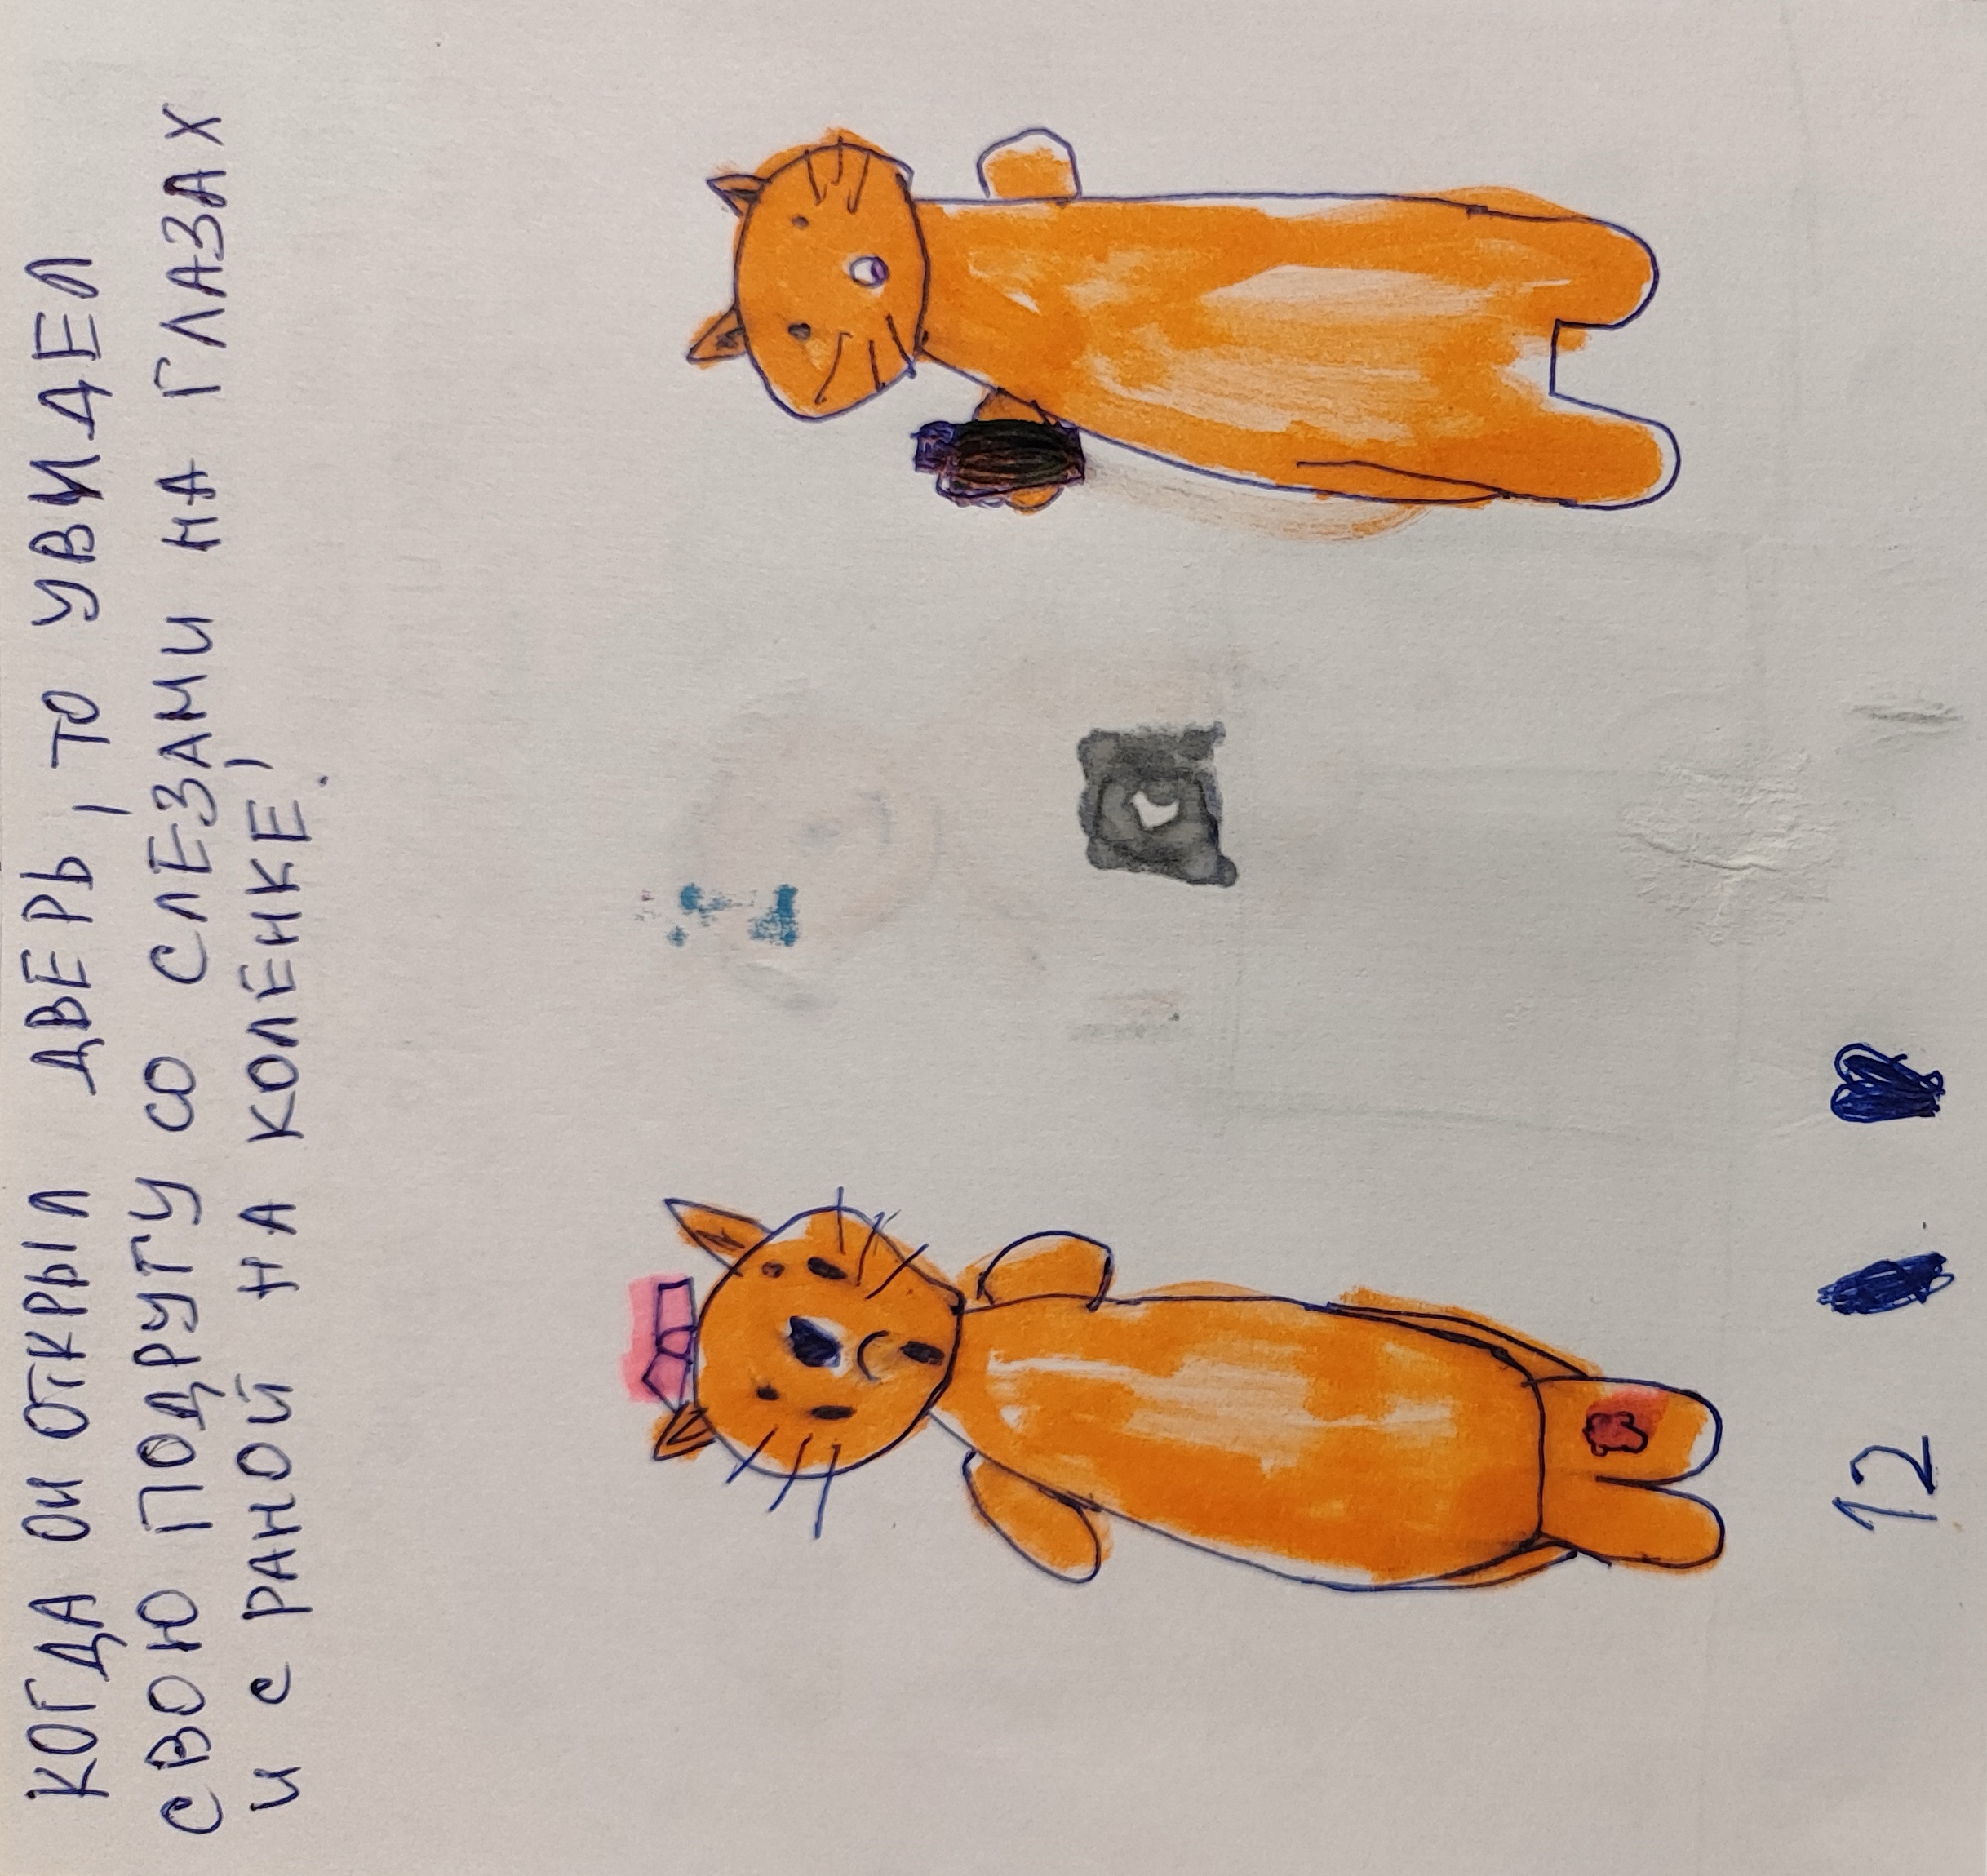 КОГДА ОН ОТКРЫЛ ДВЕРЬ, ТО УВИДЕЛ
СВОЮ ПОДРУГУ СО СЛЕЗАМИ НА ГЛАЗАХ
И С РАНОЙ НА КОЛЕНКЕ!
12